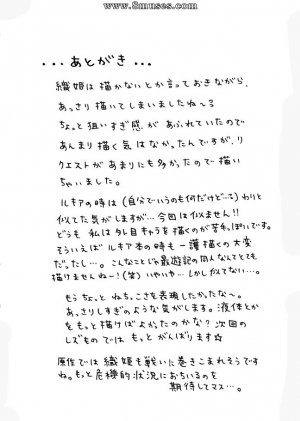 www.8muses.com
・・・あとがき・・・
織姫は描かないとか言っておきながら、
あっさり描いてしまいましたね〜る
ちょっと狙いすぎ感があふれていたので
あんまり描く気はなかったんですが、リ
クエストがあまりにも多かったので描い
ちゃいました。
ルキアの時は(自分でいうのも何だけどって)わりと
似てた気がしますが…今回は似ません!!
どうも私はタレ目キャラを描くのが苦手っぽいです。
そういえばルキア本の時も一護描くの大変
だったし…。こんなことじゃ最遊記の同人なんてとても
描けませんねー!(笑)いやいや…しかし似てない…。
もうちょっとねちっこさを表現したかったな〜。
あっさりしすぎのような気がします。液体とか
をもっと描けばよかったのかな?次回の
しズものではもっとがんばります☆
原作では織姫も戦いに巻きこまれそうです
ね。もっと危機的状況におちいるのを
期待してマス…。